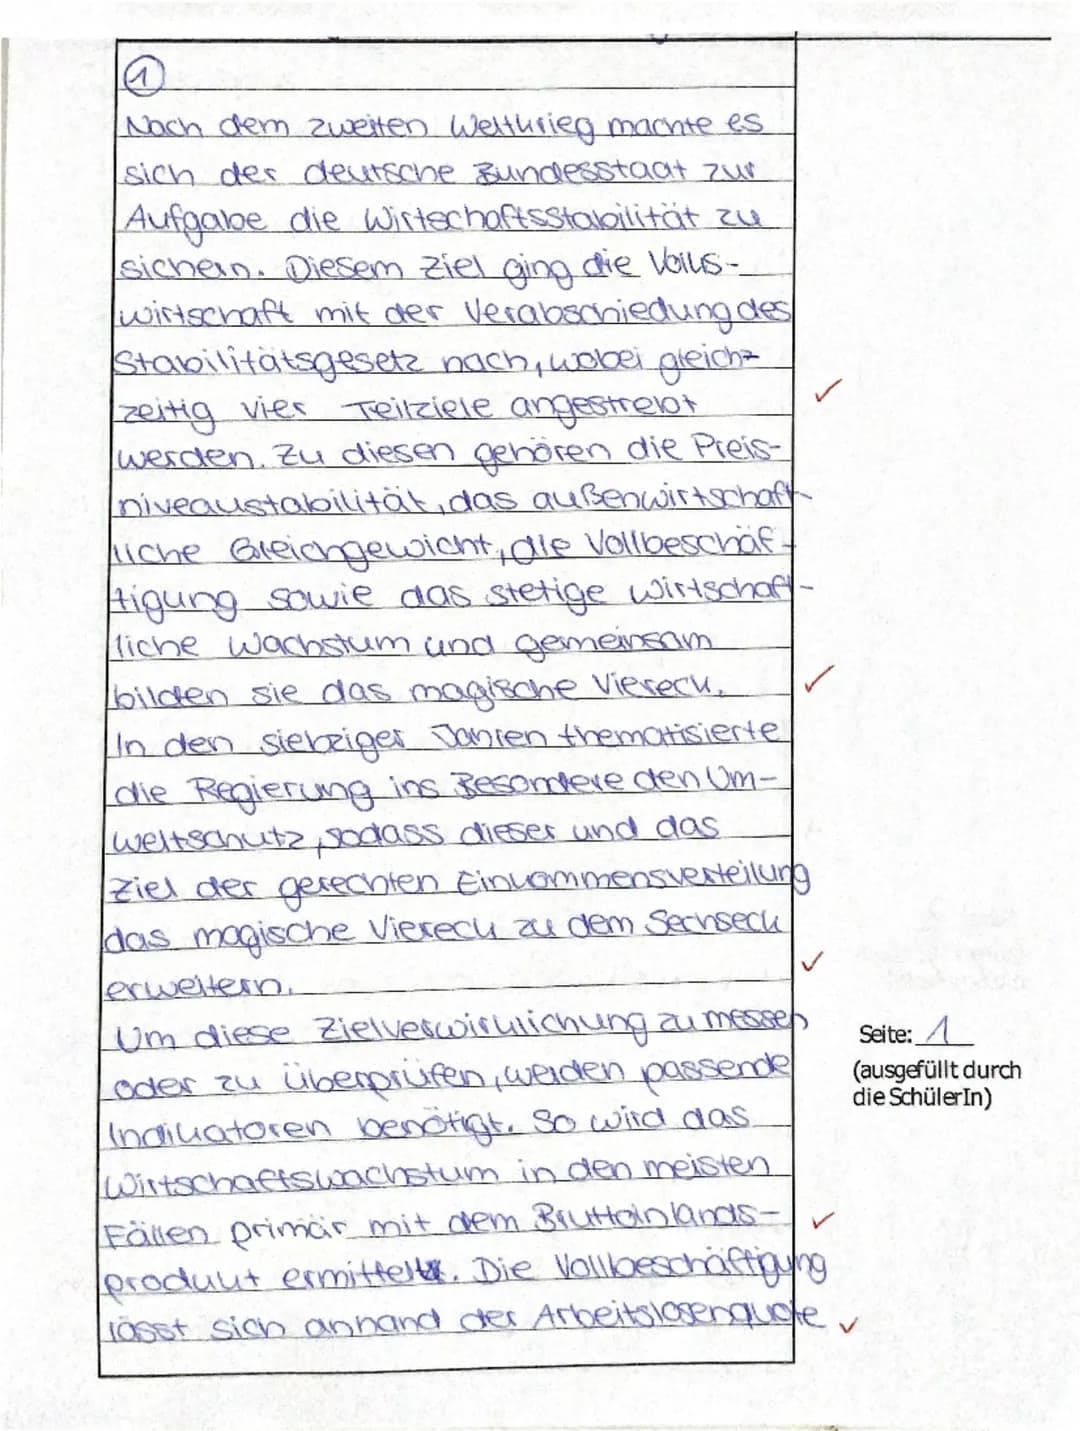 1
Nach dem zweiten Weltkrieg machte es
sich der deutsche Bundesstaat zur
Aufgabe die Wirtschaftsstabilität zu
sichern. Diesem Ziel ging die Volks-
wirtschaft mit der Verabschiedung des
Stabilitätsgesetz nach, wobei gleich-
zeitig vier Teilziele angestrebt
werden. Zu diesen gehören die Preis-
niveaustabilität, das außenwirtschaft-
liche Gleichgewicht, die Vollbeschäf-
tigung sowie das stetige wirtschaft-
liche Wachstum und gemeinsam
bilden sie das magische Viereck.
In den siebziger Jahren thematisierte
die Regierung ins Besondere den Um-
weltschutz, sodass dieser und das
Ziel der gerechten Einkommensverteilung
das magische Viereck zu dem Sechseck
erweitern.
Um diese Zielverwirklichung zu messen
oder zu überprüfen, werden passende
Indikatoren benötigt. So wird das
Wirtschaftswachstum in den meisten
Fällen primär mit dem Bruttoinlands-
produkt ermittelt. Die Vollbeschäftigung
lässt sich anhand der Arbeitslosenquote
Seite: 1
(ausgefüllt durch
die SchülerIn)